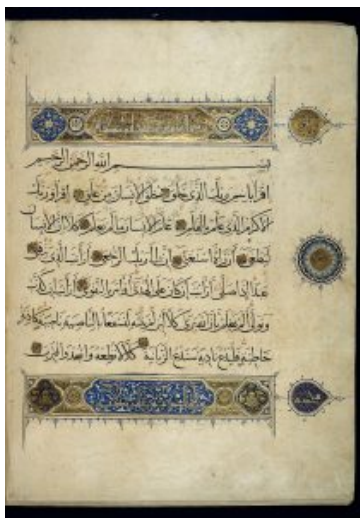 بسم الله الرحمن الرحيم
اقرأ باسم ربك الذي خلق خلق الإنسان من علق اقرأ وربك
الأكرم الذي علم بالقلم علم الإنسان ما لم يعلم كلا إن الإنسان
ليطغى أن رآه استغنى إن إلى ربك الرجعى أرأيت الذي ينهى
عبدا إذا صلى أرأيت إن كان على الهدى أو أمر بالتقوى أرأيت إن كذب
وتولى ألم يعلم بأن الله يرى كلا لئن لم ينته لنسفعا بالناصية ناصية كاذبة
خاطئة فليدع ناديه سندع الزبانية كلا لا تطعه واسجد واقترب